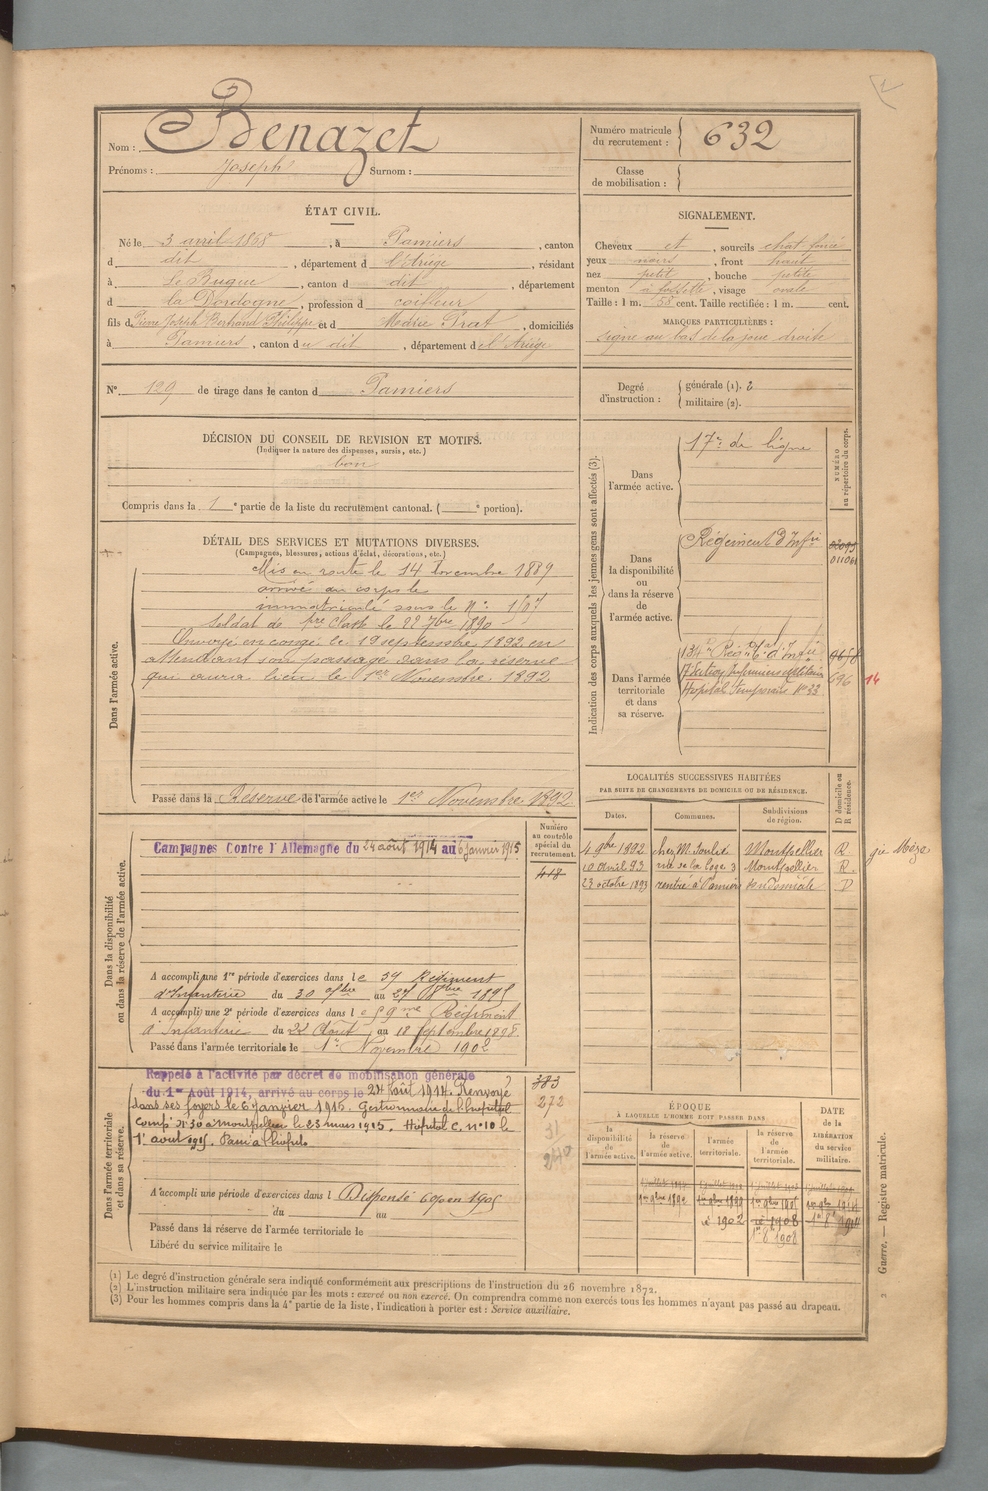 Nom : Benazet
Prénoms : Joseph Surnom :
Numéro matricule du recrutement : 632
Classe de mobilisation :
ÉTAT CIVIL.
Né le 3 avril 1868, à Pamiers, canton
d dit, département d l'Ariège, résidant
à Le Bugue, canton d dit, département
d la Dordogne, profession d coiffeur
fils d Pierre Joseph Bertrand Philippe et d Marie Prat, domiciliés
à Pamiers, canton du dit, département de l'Ariège
SIGNALEMENT.
Cheveux et, sourcils chat. foncé
yeux noirs, front haut
nez petit, bouche petite
menton à fossette, visage ovale
Taille : 1 m. 55 cent. Taille rectifiée : 1 m. cent.
MARQUES PARTICULIÈRES :
signe au bas de la joue droite
N° 129 de tirage dans le canton d Pamiers
Degré d'instruction : générale (1). 2
militaire (2).
DÉCISION DU CONSEIL DE REVISION ET MOTIFS.
(Indiquer la nature des dispenses, sursis, etc.)
bon
Compris dans la 1e partie de la liste du recrutement cantonal. ( e portion).
DÉTAIL DES SERVICES ET MUTATIONS DIVERSES.
(Campagnes, blessures, actions d'éclat, décorations, etc.)
Dans l'armée active.
Mis en route le 14 novembre 1889
arrivé au corps le
immatriculé sous le N°:
Soldat de 1re classe le 22 7bre 1890
Envoyé en congé le 19 septembre 1892 en
attendant son passage dans la réserve
qui aura lieu le 1er Novembre 1892
Passé dans la Réserve de l'armée active le 1er Novembre 1892
Indication des corps auxquels les jeunes gens sont affectés (3).
NUMÉRO au répertoire du corps.
Dans l'armée active.
17e de ligne
Dans la disponibilité ou dans la réserve de l'armée active.
Régiment d'Infie
Dans l'armée territoriale et dans sa réserve.
134e Régt tal d'Infie
17 Section Infirmiers militaires
Hopital Temporaire N° 33
696 14
LOCALITÉS SUCCESSIVES HABITÉES
PAR SUITE DE CHANGEMENTS DE DOMICILE OU DE RÉSIDENCE.
Dates. Communes. Subdivisions de région. D domicile ou R résidence.
4 9bre 1892 chez M. Montpellier R
10 avril 93 rue de la Loge 3 Montpellier R.
23 octobre 1893 rentré à Pamiers D
Dans la disponibilité ou dans la réserve de l'armée active.
Numéro au contrôle spécial du recrutement.
418
Campagnes Contre l'Allemagne du 24 août 1914 au 6 janvier 1915
A accompli une 1re période d'exercices dans le 59 Régiment
d'Infanterie du 30 au 27 1895
A accompli une 2e période d'exercices dans le 59me Régiment
d'Infanterie du 22 Août au 18 Septembre 1898
Passé dans l'armée territoriale le 1er Novembre 1902
Dans l'armée territoriale et dans sa réserve.
Rappelé à l'activité par décret de mobilisation générale
du 1er Août 1914, arrivé au corps le 24 Août 1914. Renvoyé
dans ses foyers le 6 janvier 1915. Gestionnaire de l'hopital
comp. N° 30 à Montpellier le 23 mars 1915. Hopital C. n° 10 le
1er août 1915.
383
272
31
240
A accompli une période d'exercices dans l Dispensé 6 en 1905
du au
Passé dans la réserve de l'armée territoriale le
Libéré du service militaire le
ÉPOQUE
À LAQUELLE L'HOMME DOIT PASSER DANS
la disponibilité de l'armée active. la réserve de l'armée active. l'armée territoriale. la réserve de l'armée territoriale.
DATE de la LIBÉRATION du service militaire.
1er 9bre 1892 1er 9bre 1899
1902 1908
1er 8bre 1908
(1) Le degré d'instruction générale sera indiqué conformément aux prescriptions de l'instruction du 26 novembre 1872.
(2) L'instruction militaire sera indiquée par les mots : exercé ou non exercé. On comprendra comme non exercés tous les hommes n'ayant pas passé au drapeau.
(3) Pour les hommes compris dans la 4e partie de la liste, l'indication à porter est : Service auxiliaire.
Guerre. — Registre matricule.